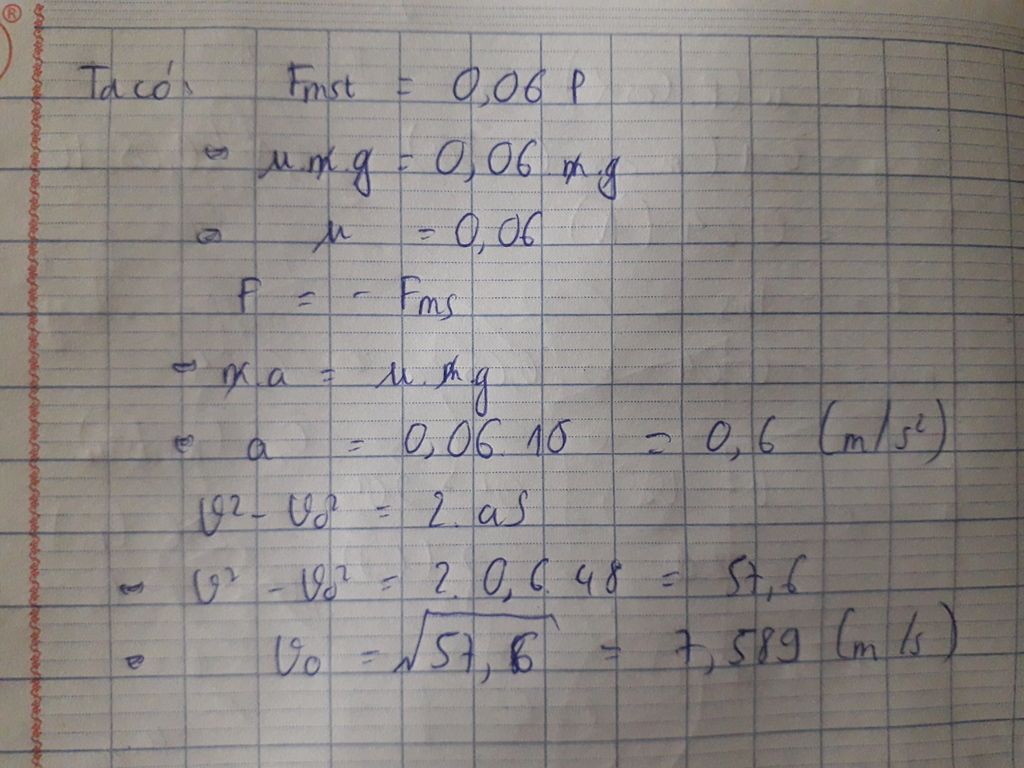 ®
Ta có: Fmst = 0,06 P
⇔ μ.m.g = 0,06 m.g
⇔ μ = 0,06
F = - Fms
⇔ m.a = μ.m.g
⇔ a = 0,06.10 = 0,6 (m/s²)
v² - v₀² = 2.aS
⇔ v² - v₀² = 2.0,6.48 = 57,6
⇔ v₀ = √57,6 = 7,589 (m/s)